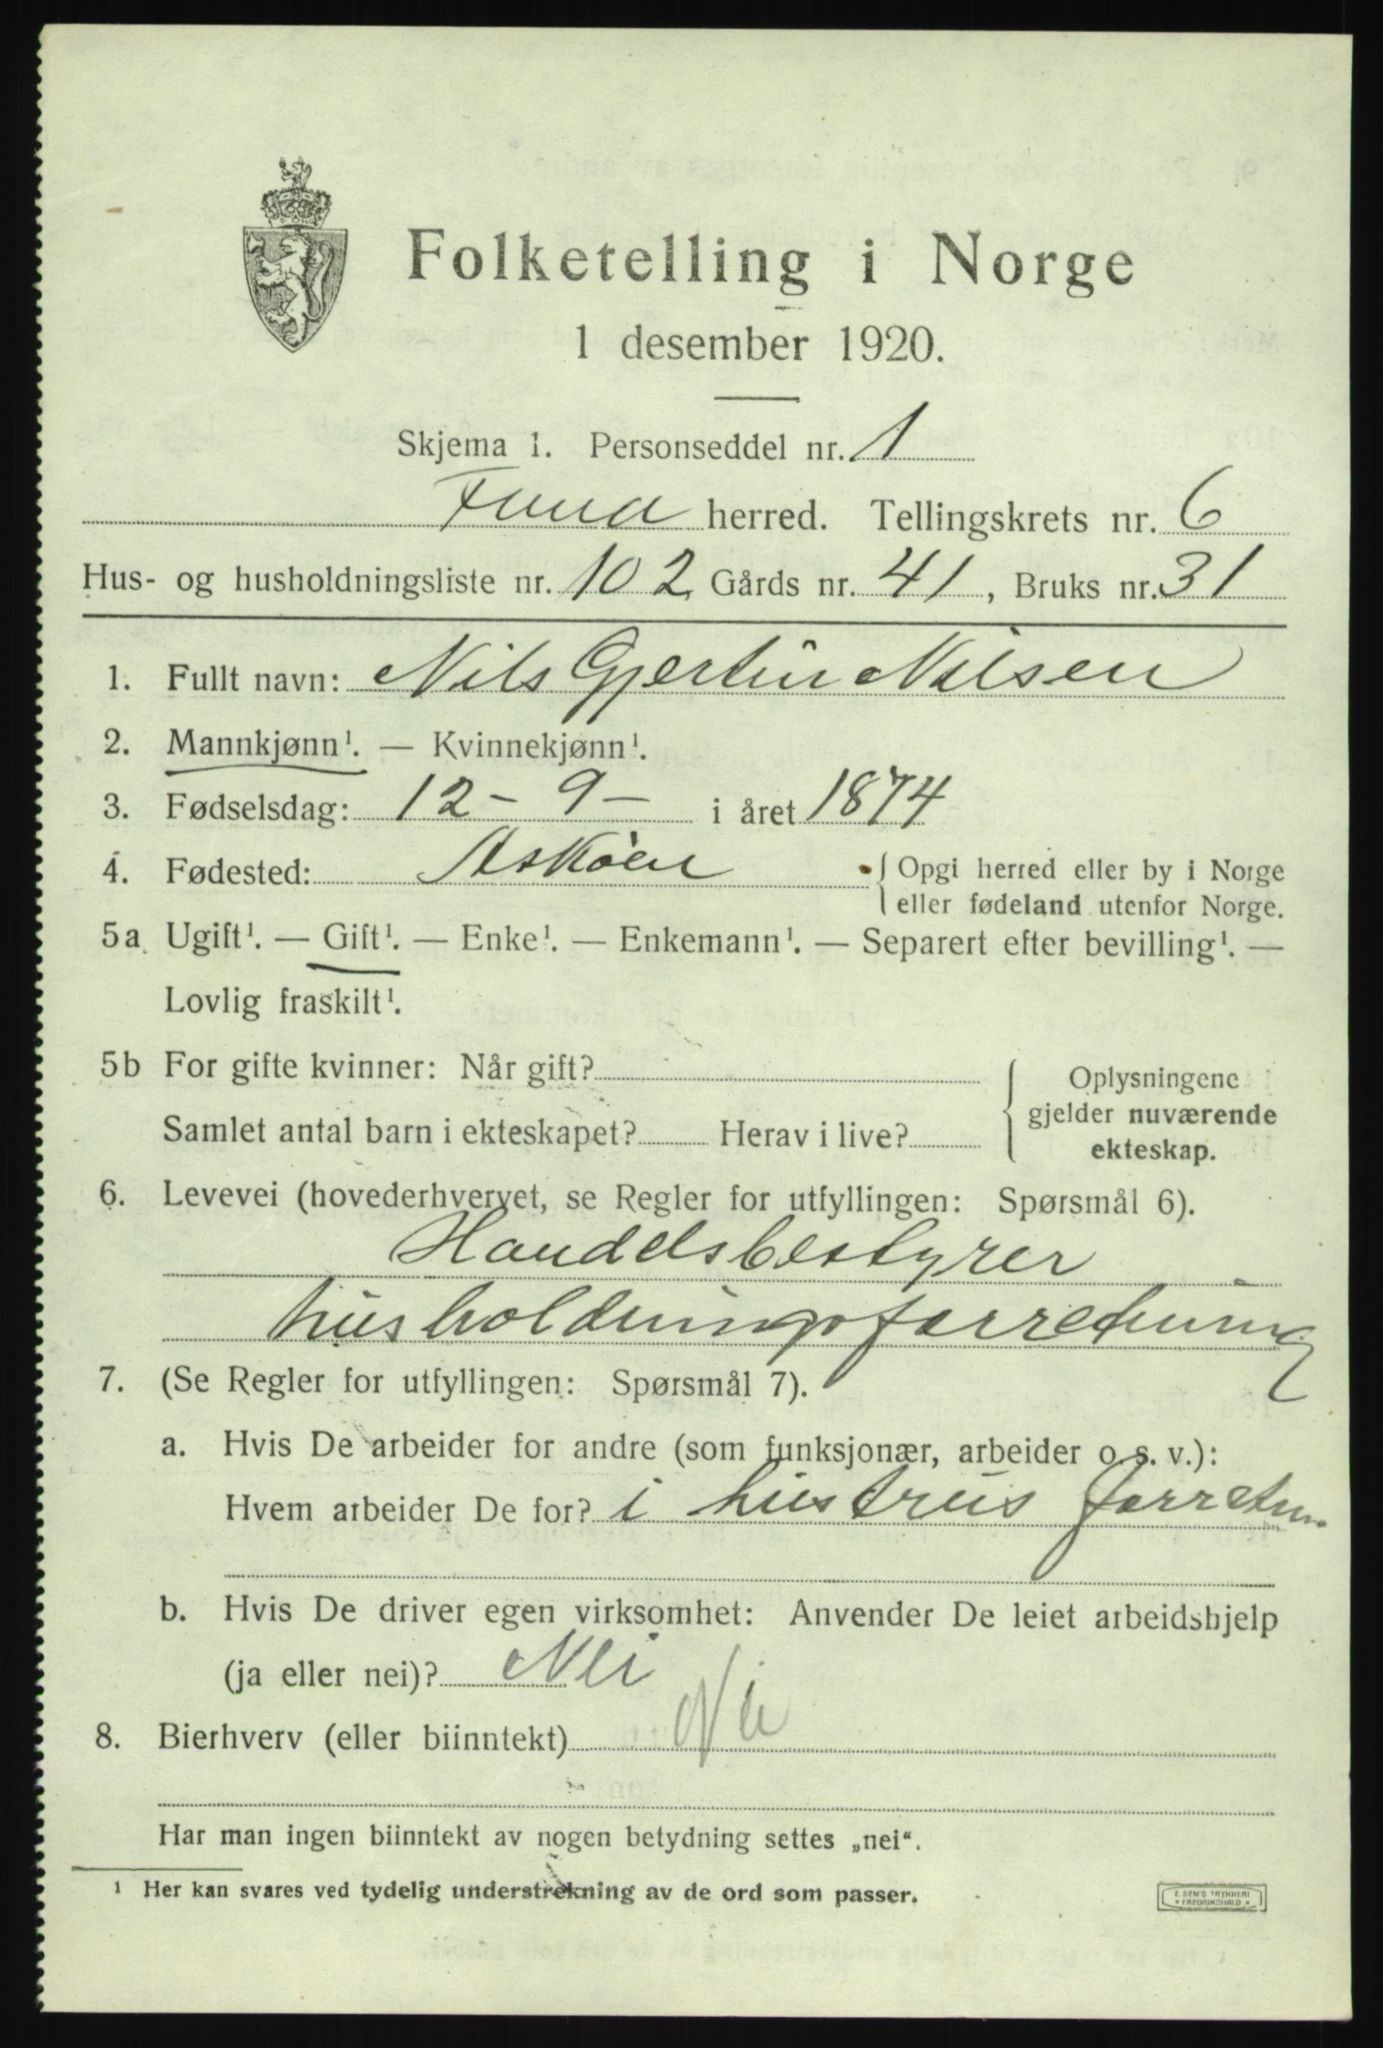 Folketelling i Norge
1 desember 1920.
Skjema 1. Personseddel nr. 1
Fana herred. Tellingskrets nr. 6
Hus- og husholdningsliste nr. 102 Gårds nr. 41, Bruks nr. 31
1. Fullt navn: Nils Gjertin Nilsen
2. Mannkjønn¹. — Kvinnekjønn¹.
3. Fødselsdag: 12 - 9 - i året 1874
4. Fødested: Askøen { Opgi herred eller by i Norge
eller fødeland utenfor Norge.
5a Ugift¹. — Gift¹. — Enke¹. — Enkemann¹. — Separert efter bevilling¹. —
Lovlig fraskilt¹.
5b For gifte kvinner: Når gift?
Samlet antal barn i ekteskapet? Herav i live?
Oplysningene
gjelder nuværende
ekteskap.
6. Levevei (hovederhvervet, se Regler for utfyllingen: Spørsmål 6).
Handelsbestyrer
husholdningsforretning
7. (Se Regler for utfyllingen: Spørsmål 7).
a. Hvis De arbeider for andre (som funksjonær, arbeider o. s. v.):
Hvem arbeider De for? i hustrus forretn.
b. Hvis De driver egen virksomhet: Anvender De leiet arbeidshjelp
(ja eller nei)? Nei
8. Bierhverv (eller biinntekt) Nei
Har man ingen biinntekt av nogen betydning settes „nei“.
¹ Her kan svares ved tydelig understrekning av de ord som passer.
E. SEM'S TRYKKERI
FREDRIKSHALD